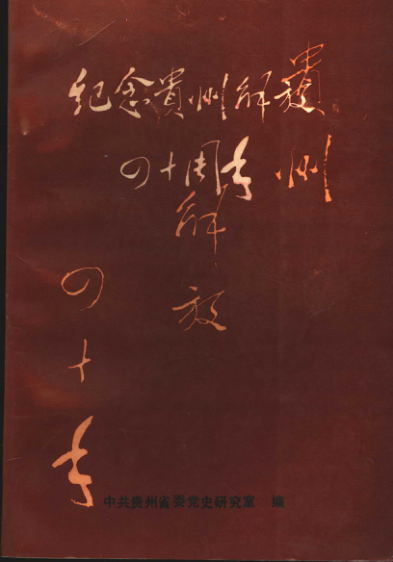 纪念贵州解放
四十周年
贵州
解放
四十年
中共贵州省委党史研究室 编